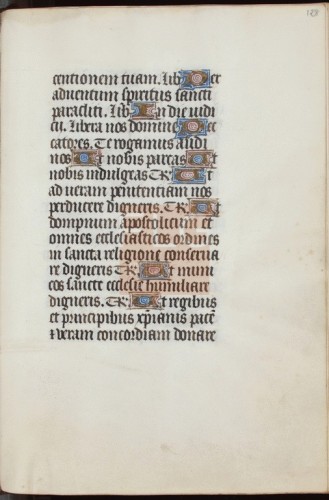 128
centionem tuam. Lib P er
aduentum spiritus sancti
paracliti. Lib I n die iudi
cii. Libera nos domine P ec
catores. Te rogamus audi
nos V t nobis parcas V t
nobis indulgeas Te R V t
ad ueram penitentiam nos
perducere digneris. Te R. V t
dompnum apostolicum et
omnes ecclesiasticos ordines
in sancta religione conserua
re digneris Te R. V t inimi
cos sancte ecclesie humiliare
digneris. Te R. V t regibus
et principibus xpianis pace
⁊ veram concordiam donare